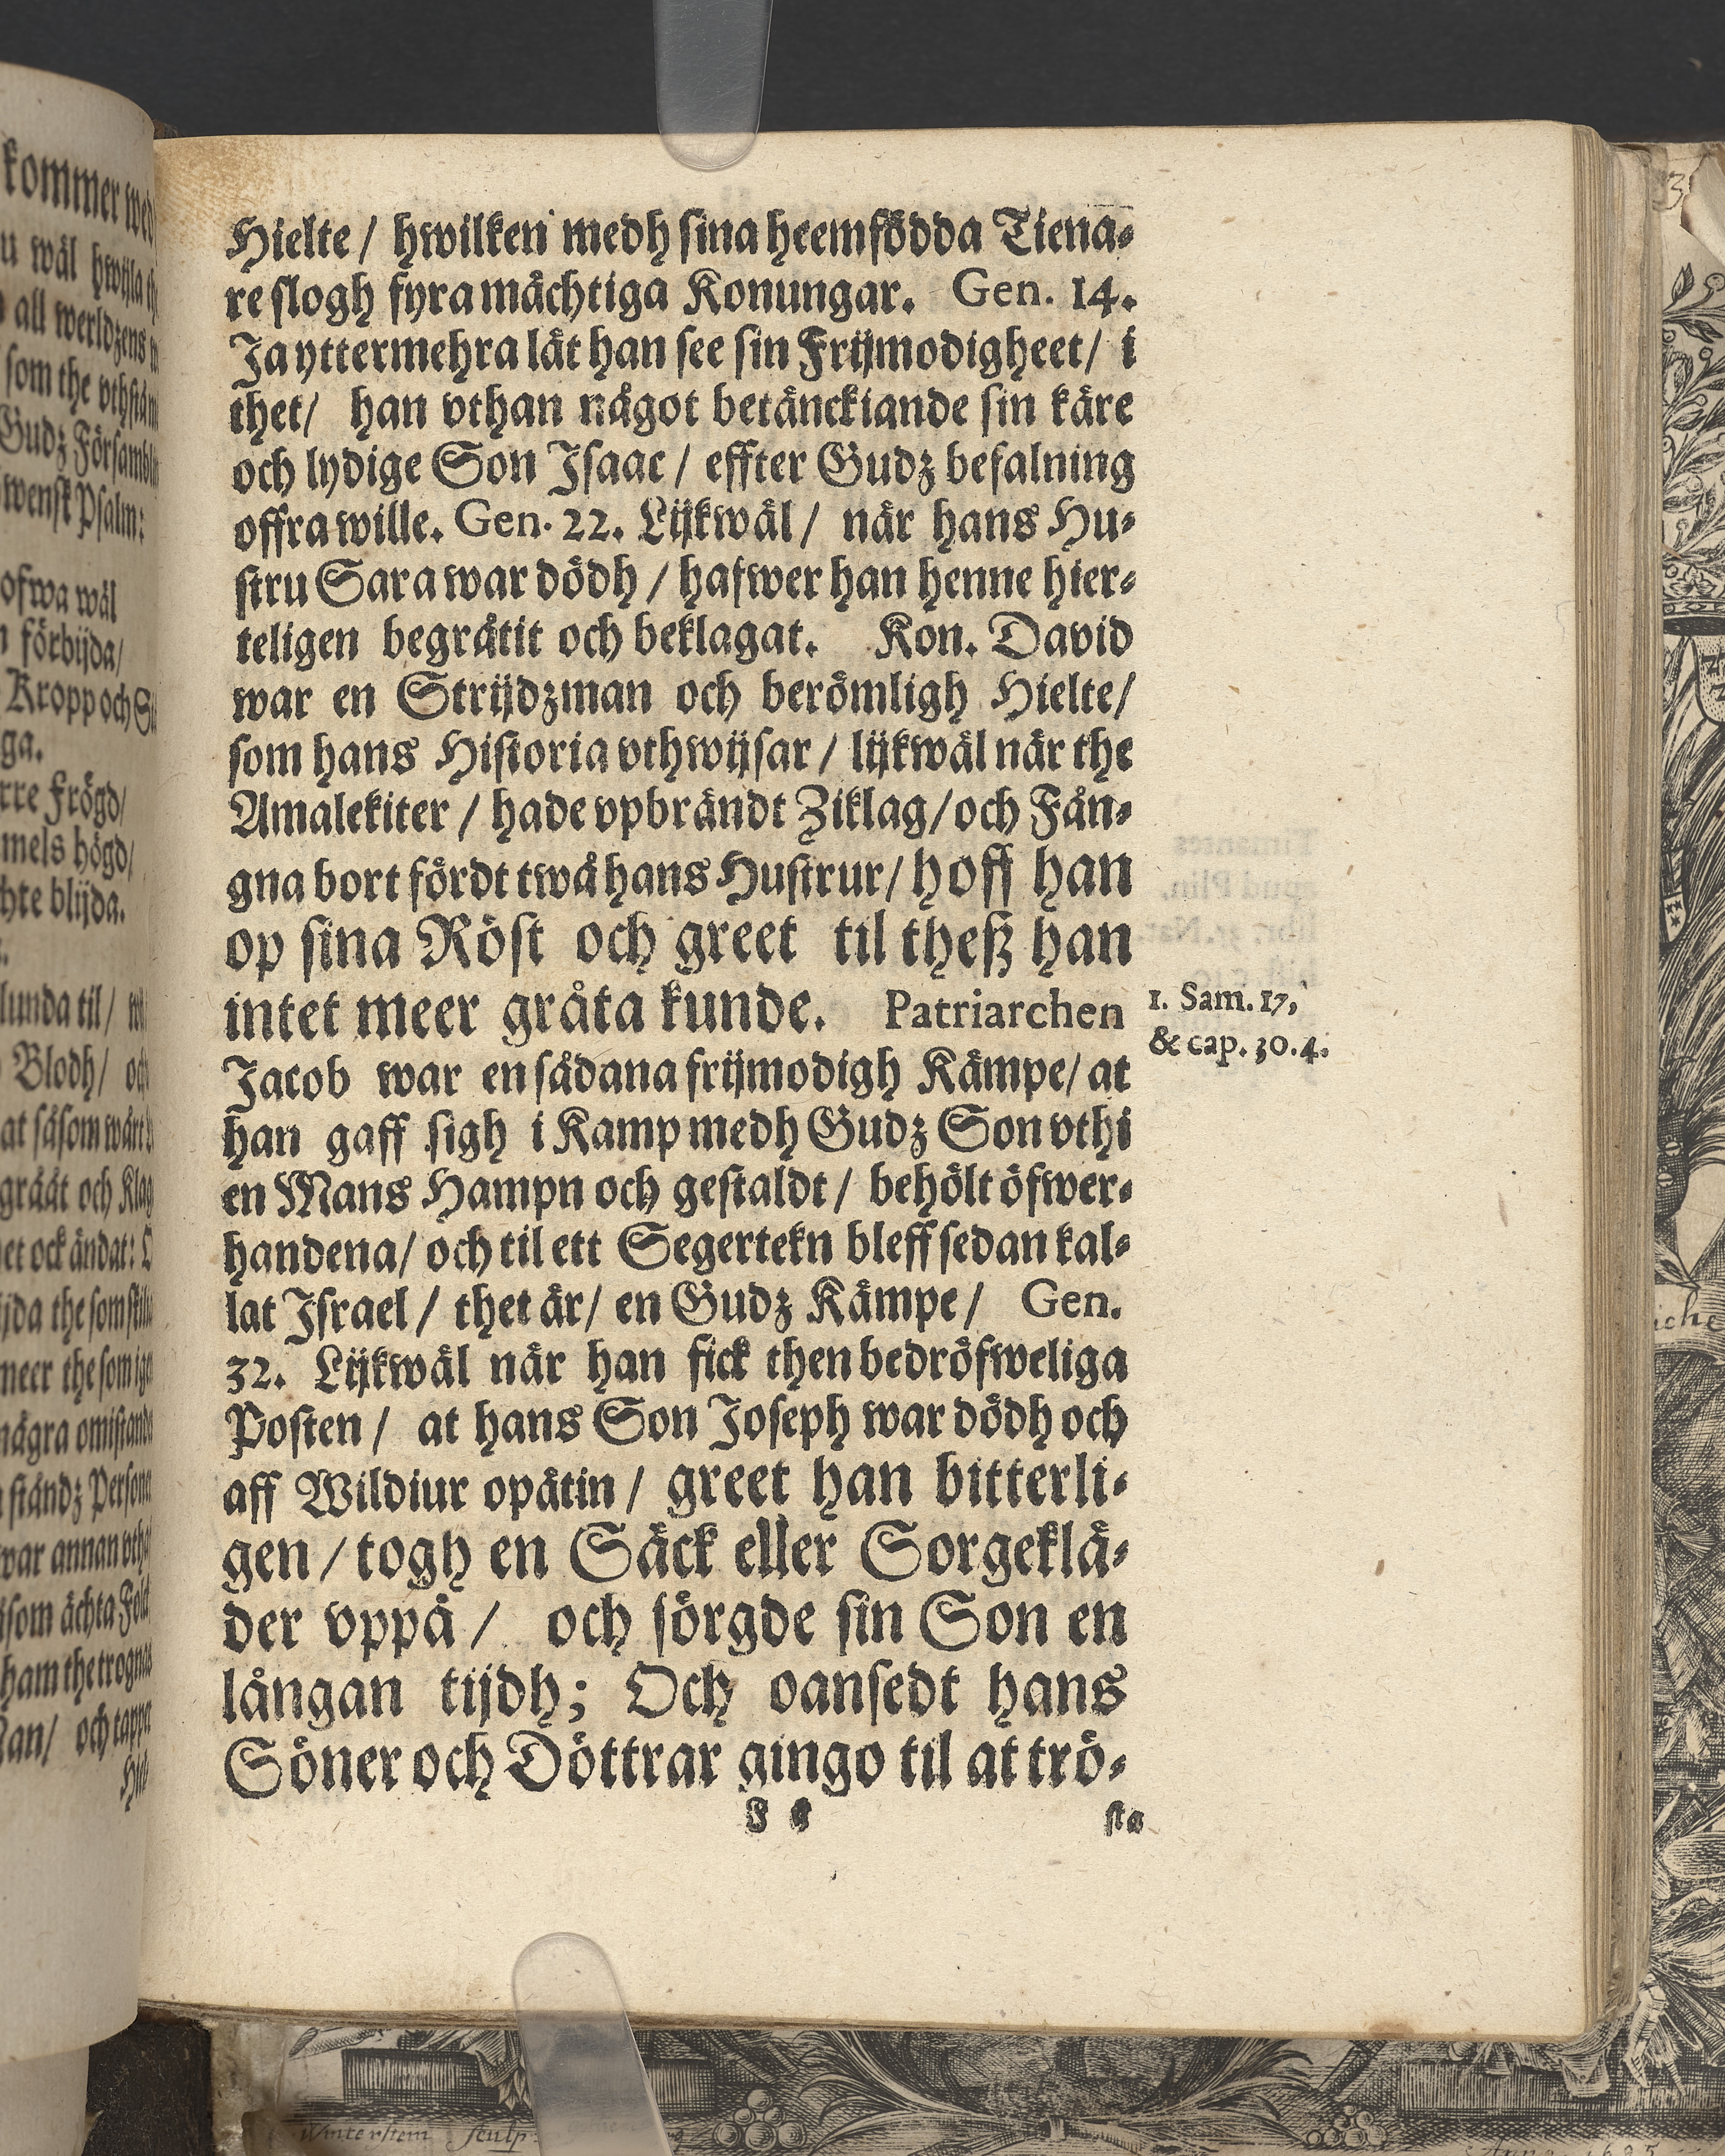 Hielte / hwilken medh sina heemfödda Tiena-
re slogh fyra mächtiga Konungar. Gen. 14.
Ja yttermehra lät han see sin Frijmodigheet / i
thet / han vthan något betänckiande sin käre
och lydige Son Isaac / effter Gudz befalning
offra wille. Gen. 22. Lijkwäl / när hans Hu-
stru Sara war dödh / hafwer han henne hier-
teligen begråtit och beklagat. Kon. David
war en Strijdzman och berömligh Hielte /
som hans Historia vthwijsar / lijkwäl når the
Amalekiter / hade vpbrändt Ziklag / och Fån-
gna bort fördt twå hans Hustrur / hoff han
op sina Röst och greet til theß han
intet meer gråta kunde. Patriarchen
Jacob war en sådana frijmodigh Kämpe / at
han gaff sigh i Kamp medh Gudz Son vthi
en Mans Hampn och gestaldt / behölt öfwer-
handena / och til ett Segertekn bleff sedan kal-
lat Israel / thet är / en Gudz Kämpe / Gen.
32. Lijkwäl när han fick then bedröfweliga
Posten / at hans Son Joseph war dödh och
aff Wildiur opätin / greet han bitterli-
gen / togh en Säck eller Sorgeklä-
der vppå / och sörgde sin Son en
långan tijdh; Och oansedt hans
Söner och Döttrar gingo til at trö-
sta
1. Sam. 17,
& cap. 30. 4.
kommer wed
wäl hwijla
all werldzens
som the
Gudz Försambl
Psalm:
ofwa wäl
förbijda /
Kropp och
ga.
Frögd /
mels högd /
blijda.
lunda til /
Blodh /
at såsom
grååt och Klag
ock ändat:
the som
meer the som
några
ståndz
war annan
ächta Folk
och tapper